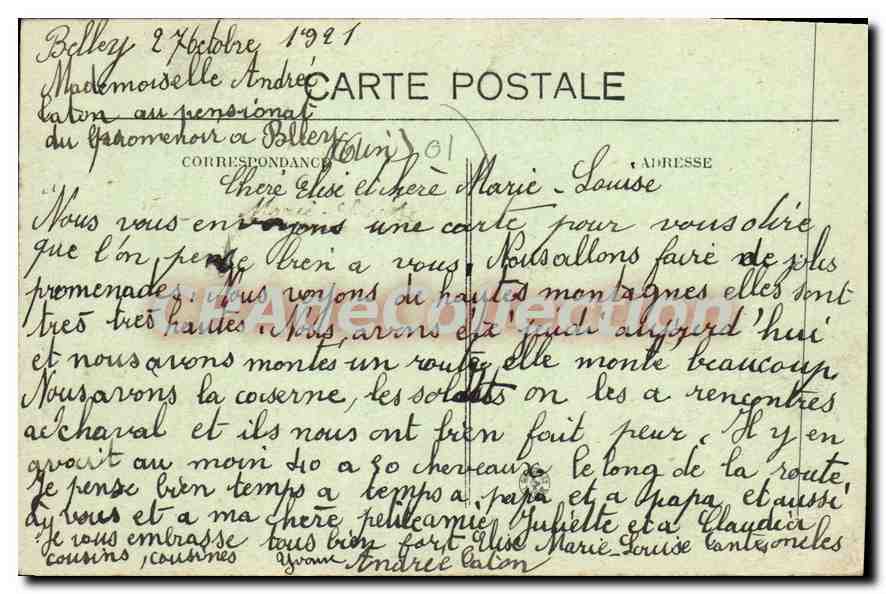 Belley 27 octobre 1921
Mademoiselle André
CARTE POSTALE
Caton au pensionat
du promenoir a Blley
(Ain) 01
CORRESPONDANCE ADRESSE
Cheré Elise et cherè Marie-Louise
Nous vous envoyons une carte pour vous dire
que l'on pense bien a vous. Nous allons faire de jolis
promenades. Nous voyons de hautes montagnes elles sont
tres tres hautes. Nous avons été jeudi aujourd'hui
et nous avons montés un route, elle monte beaucoup
Nous avons la caserne, les soldats on les a rencontrés
a chaval et ils nous ont bien fait peur. Il y en
avait au moin 40 a 50 cheveaux le long de la route
Je pense bien temps a temps a papa et a papa et aussi
a vous et a ma chère petite amie Juliette et a Claudia
Je vous embrasse tous bien fort Elise Marie-Louise tantes oncles
cousins, cousines Yvonne Andreé Caton
CPAdeCollection